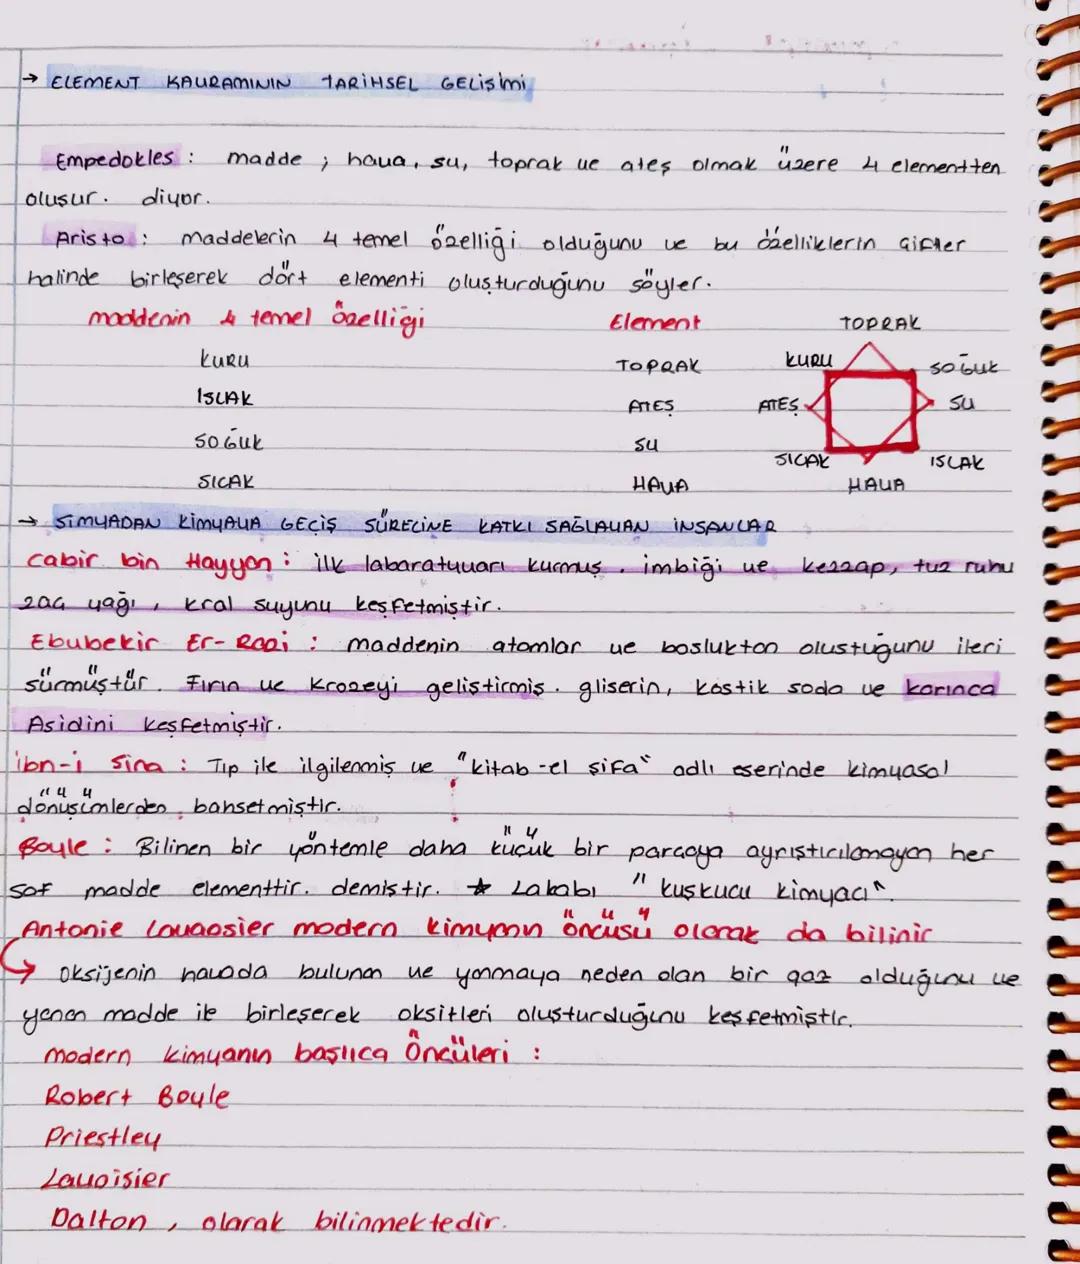 → ELEMENT KAVRAMININ TARİHSEL GELİŞİMİ
Empedokles : madde ; hava, su, toprak ve ateş olmak üzere 4 elementten
oluşur. diyor.
Aristo : maddelerin 4 temel özelliği olduğunu ve bu özelliklerin çiftler
halinde birleşerek dört elementi oluşturduğunu söyler.
maddenin 4 temel özelliği Element TOPRAK
KURU TOPRAK KURU SOĞUK
ISLAK ATEŞ ATEŞ SU
SOĞUK SU SICAK ISLAK
SICAK HAVA HAVA
→ SİMYADAN KİMYAYA GEÇİŞ SÜRECİNE KATKI SAĞLAYAN İNSANLAR
Cabir bin Hayyan : ilk labaratuvarı kurmuş. imbiği ve kezzap, tuz ruhu
zaç yağı, kral suyunu keşfetmiştir.
Ebubekir Er-Razi : maddenin atomlar ve boşluktan oluştuğunu ileri
sürmüştür. Fırın ve krozeyi geliştirmiş. gliserin, kostik soda ve karınca
Asidini keşfetmiştir.
ibn-i Sina : Tıp ile ilgilenmiş ve "kitab-el şifa" adlı eserinde kimyasal
dönüşümlerden bahsetmiştir.
Boyle : Bilinen bir yöntemle daha küçük bir parçaya ayrıştırılamayan her
saf madde elementtir. demiştir. ★ Lakabı "kuşkucu kimyacı".
Antonie Lavaosier modern kimyanın öncüsü olarak da bilinir
↳ oksijenin havada bulunan ve yanmaya neden olan bir gaz olduğunu ve
yanan madde ile birleşerek oksitleri oluşturduğunu keşfetmiştir.
modern kimyanın başlıca öncüleri :
Robert Boyle
Priestley
Lavoisier
Dalton , olarak bilinmektedir.